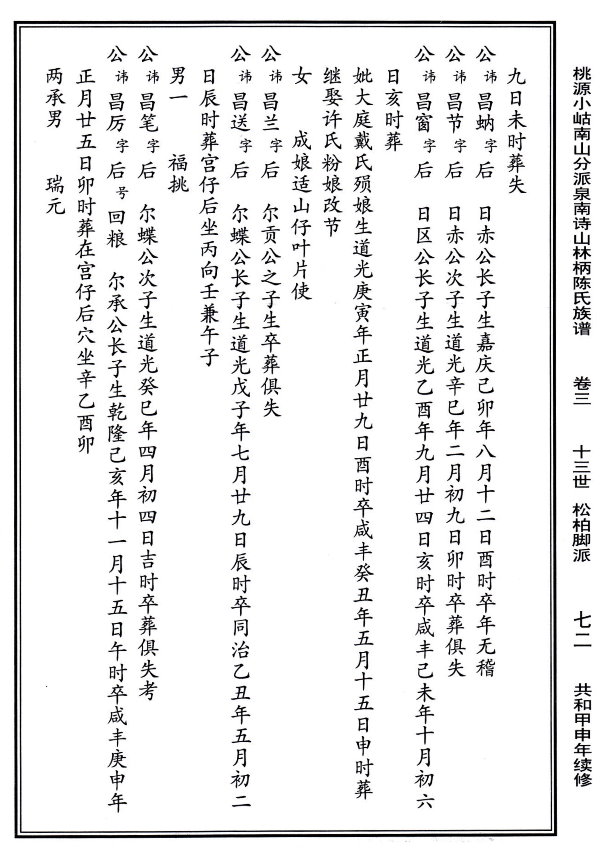 桃源小岵南山分派泉南诗山林柄陈氏族谱 卷三 十三世 松柏脚派 七二 共和甲申年续修
九日未时葬失
公讳昌蚋字后 日赤公长子生嘉庆己卯年八月十二日酉时卒年无稽
公讳昌节字后 日赤公次子生道光辛巳年二月初九日卯时卒葬俱失
公讳昌窗字后 日区公长子生道光乙酉年九月廿四日亥时卒咸丰己未年十月初六
日亥时葬
妣大庭戴氏殒娘生道光庚寅年正月廿九日酉时卒咸丰癸丑年五月十五日申时葬
继娶许氏粉娘改节
女 成娘适山仔叶片使
公讳昌兰字后 尔贡公之子生卒葬俱失
公讳昌送字后 尔蝶公长子生道光戊子年七月廿九日辰时卒同治乙丑年五月初二
日辰时葬宫仔后坐丙向壬兼午子
男一 福挑
公讳昌笔字后 尔蝶公次子生道光癸巳年四月初四日吉时卒葬俱失考
公讳昌厉字后号回粮 尔承公长子生乾隆己亥年十一月十五日午时卒咸丰庚申年
正月廿五日卯时葬在宫仔后穴坐辛乙酉卯
两承男 瑞元